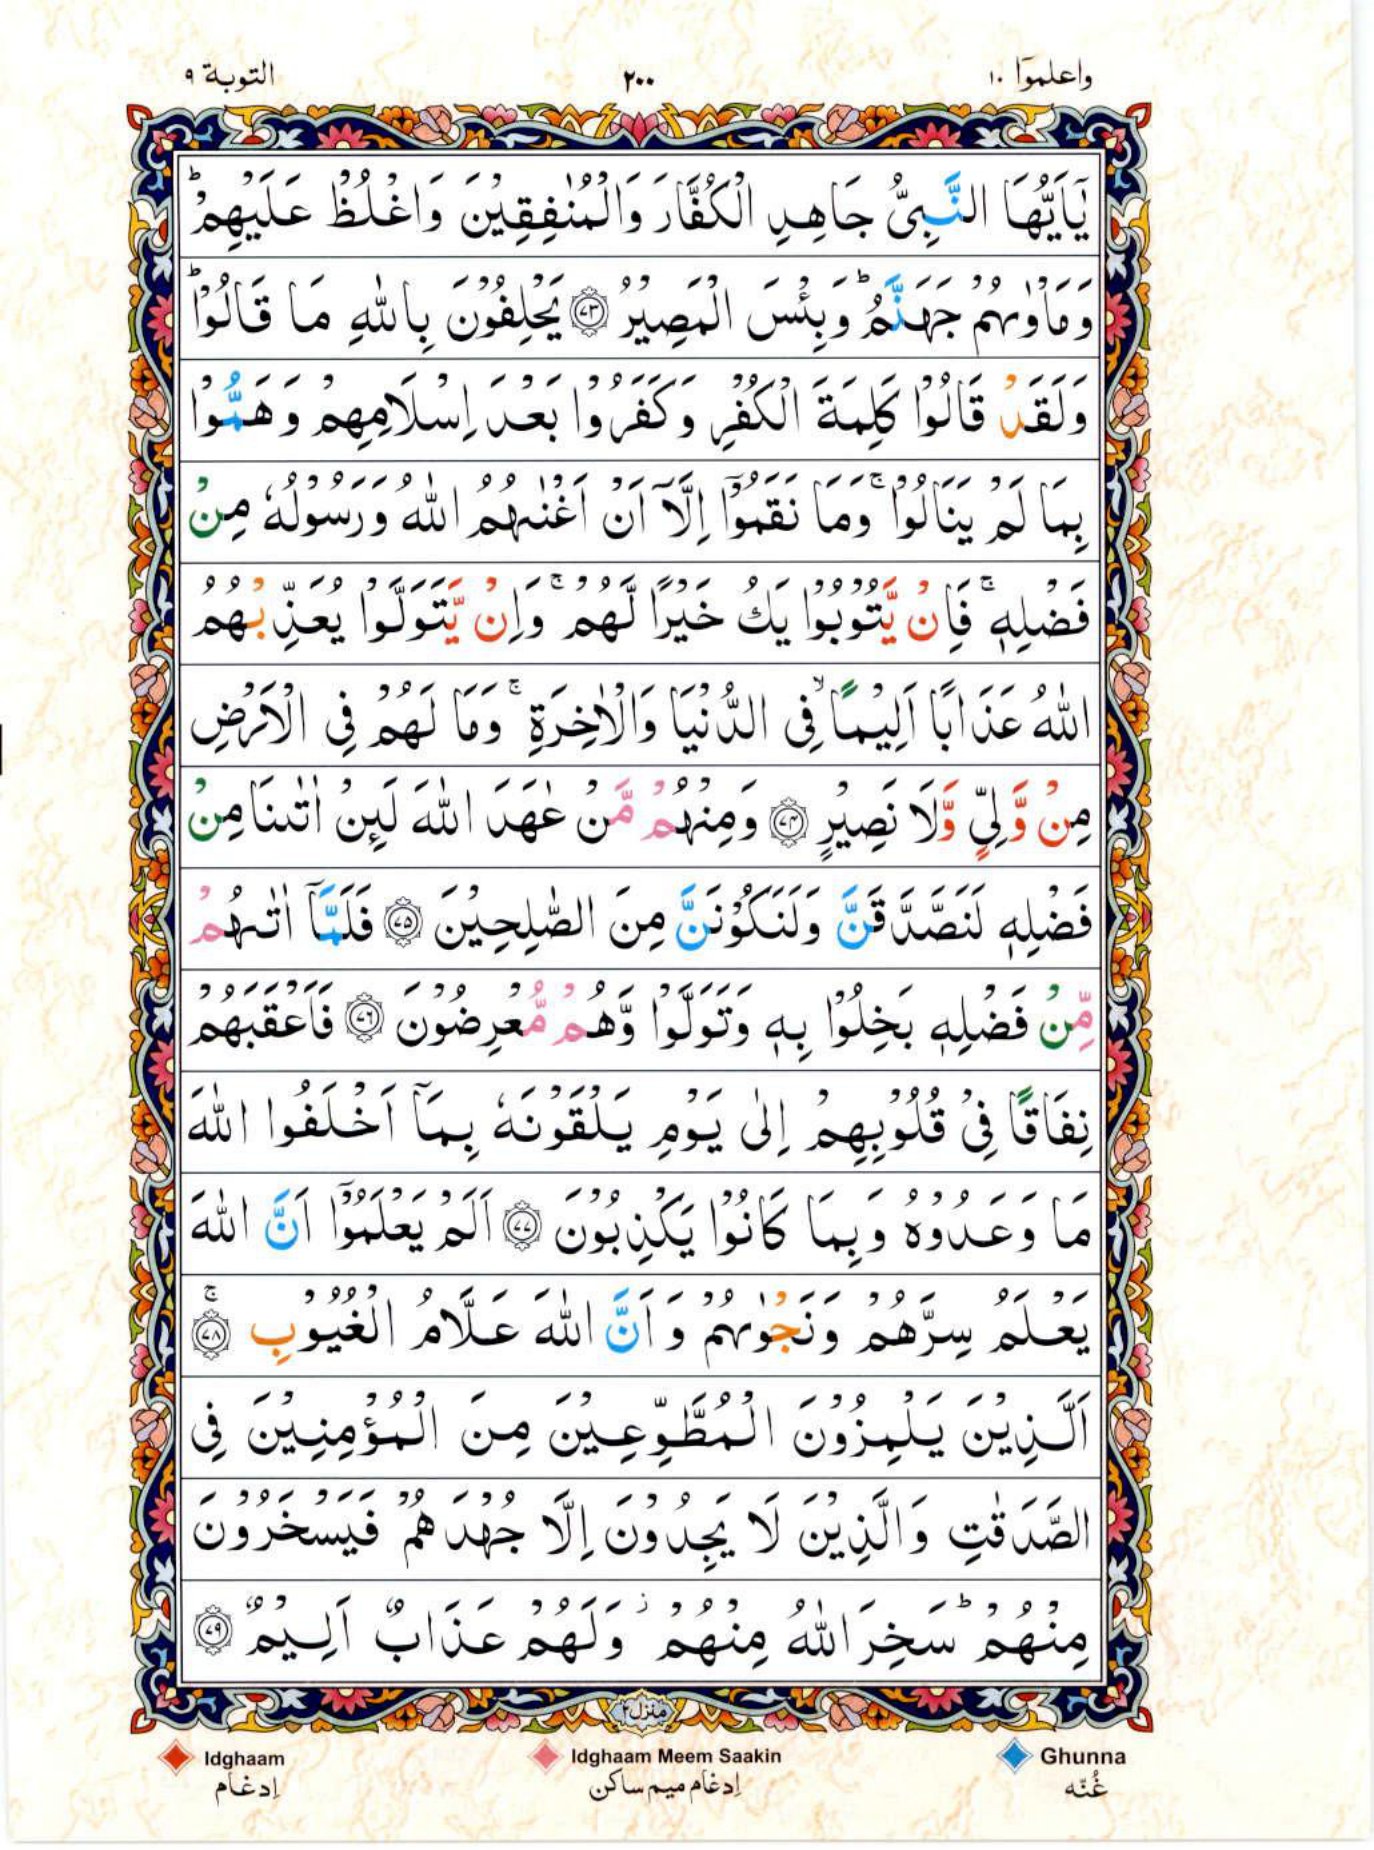 واعلموۤا ۱۰
۲۰۰
التوبة ۹
يٰۤاَيُّهَا النَّبِىُّ جَاهِدِ الْكُفَّارَ وَالْمُنٰفِقِيْنَ وَاغْلُظْ عَلَيْهِمْ ؕ
وَمَاْوٰىهُمْ جَهَنَّمُ ؕ وَبِئْسَ الْمَصِيْرُ ﴿۷۳﴾ يَحْلِفُوْنَ بِاللّٰهِ مَا قَالُوْا ؕ
وَلَقَدْ قَالُوْا كَلِمَةَ الْكُفْرِ وَكَفَرُوْا بَعْدَ اِسْلَامِهِمْ وَهَمُّوْا
بِمَا لَمْ يَنَالُوْا ۚ وَمَا نَقَمُوْۤا اِلَّاۤ اَنْ اَغْنٰىهُمُ اللّٰهُ وَرَسُوْلُهٗ مِنْ
فَضْلِهٖ ۚ فَاِنْ يَّتُوْبُوْا يَكُ خَيْرًا لَّهُمْ ۚ وَاِنْ يَّتَوَلَّوْا يُعَذِّبْهُمُ
اللّٰهُ عَذَابًا اَلِيْمًا ۙ فِى الدُّنْيَا وَالْاٰخِرَةِ ۚ وَمَا لَهُمْ فِى الْاَرْضِ
مِنْ وَّلِىٍّ وَّلَا نَصِيْرٍ ﴿۷۴﴾ وَمِنْهُمْ مَّنْ عٰهَدَ اللّٰهَ لَئِنْ اٰتٰىنَا مِنْ
فَضْلِهٖ لَنَصَّدَّقَنَّ وَلَنَكُوْنَنَّ مِنَ الصّٰلِحِيْنَ ﴿۷۵﴾ فَلَمَّاۤ اٰتٰىهُمْ
مِّنْ فَضْلِهٖ بَخِلُوْا بِهٖ وَتَوَلَّوْا وَّهُمْ مُّعْرِضُوْنَ ﴿۷۶﴾ فَاَعْقَبَهُمْ
نِفَاقًا فِىْ قُلُوْبِهِمْ اِلٰى يَوْمِ يَلْقَوْنَهٗ بِمَاۤ اَخْلَفُوا اللّٰهَ
مَا وَعَدُوْهُ وَبِمَا كَانُوْا يَكْذِبُوْنَ ﴿۷۷﴾ اَلَمْ يَعْلَمُوْۤا اَنَّ اللّٰهَ
يَعْلَمُ سِرَّهُمْ وَنَجْوٰىهُمْ وَاَنَّ اللّٰهَ عَلَّامُ الْغُيُوْبِ ۚ ﴿۷۸﴾
اَلَّذِيْنَ يَلْمِزُوْنَ الْمُطَّوِّعِيْنَ مِنَ الْمُؤْمِنِيْنَ فِى
الصَّدَقٰتِ وَالَّذِيْنَ لَا يَجِدُوْنَ اِلَّا جُهْدَهُمْ فَيَسْخَرُوْنَ
مِنْهُمْ ؕ سَخِرَ اللّٰهُ مِنْهُمْ ؗ وَلَهُمْ عَذَابٌ اَلِيْمٌ ﴿۷۹﴾
منزل ۲
Ghunna
غُنّه
Idghaam Meem Saakin
اِدغام ميم ساكن
Idghaam
اِدغام